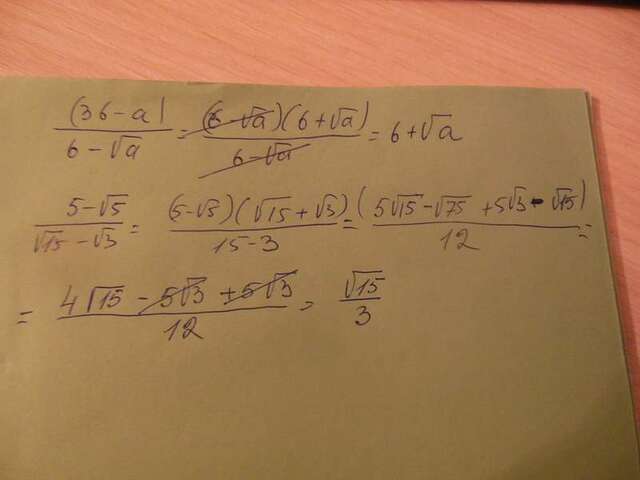 (36-a)/(6-√a) = (6-√a)(6+√a)/(6-√a) = 6+√a
(5-√5)/(√15-√3) = (5-√5)(√15+√3)/(15-3) = (5√15-√75+5√3-√15)/12 =
= (4√15-5√3+5√3)/12 = √15/3